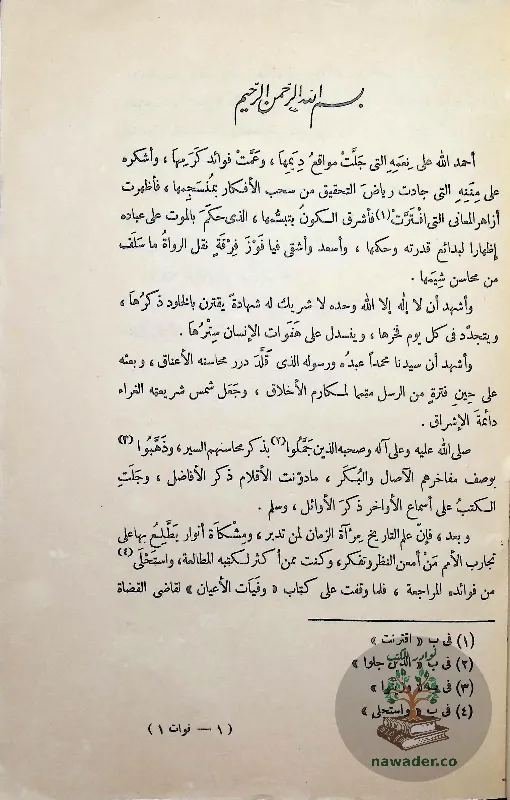 بسم الله الرحمن الرحيم
أحمد الله على نِعَمِهِ التى جَلَّتْ مواقعُ دِيَمِها ، وعَمَّتْ فوائد كَرَمِها ، وأشكره
على مِنَنِهِ التى جادت رياضَ التحقيق من سحب الأفكار بمُنْسَجِمِها ، فأظهرت
أزاهر المعانى التى افْتَرَّتْ (١) فأشرق السكونُ بتبسُّمها ، الذى حكَمَ بالموت على عباده
إظهارا لبدائع قدرته وحكمها ، وأسعد وأشقى فيا فَوْزَ فِرْقَةٍ نقل الرواةُ ما سَلَفَ
من محاسن شِيَمِها .
وأشهد أن لا إله إلا الله وحده لا شريك له شهادةً يقترن بالخلود ذكرُها ،
ويتجدَّد فى كل يوم فخرُها ، وينسدل على هَفَوات الإنسان سِتْرُها .
وأشهد أن سيدنا محمداً عبدُه ورسوله الذى قَلَّدَ درر محاسنه الأعناق ، وبعثه
على حِينِ فترةٍ من الرسل متمما لمكارم الأخلاق ، وجَعَل شمس شريعته الغراء
دائمةَ الإشراق .
صلى الله عليه وعلى آله وصحبه الذين جَمَّلُوا (٢) بذكر محاسنهم السير ، وذَهَّبُوا (٣)
بوصف مفاخرهم الآصال والبُكَر ، مادوّنت الأقلام ذكر الأفاضل ، وجَلَتِ
الكتبُ على أسماع الأواخر ذكرَ الأوائل ، وسلم .
وبعد ، فإنّ علم التاريخ مِرآة الزمان لمن تدبر ، ومِشْكاة أنوار يَطَّلِعُ بها على
تجارب الأمم مَنْ أمعن النظر وتفكر ، وكنت ممن أكثر لكتبه المطالعة ، واستَحْلَى (٤)
من فوائده المراجعة ، فلما وقفت على كتاب « وفيات الأعيان » لقاضى القضاة
(١) فى ب « اقترنت »
(٢) فى ب « الذين جلوا »
(٣) فى ب
(٤) فى ب « واستحلى »
نوادر الكتب
nawader.co
( ١ — فوات ١ )